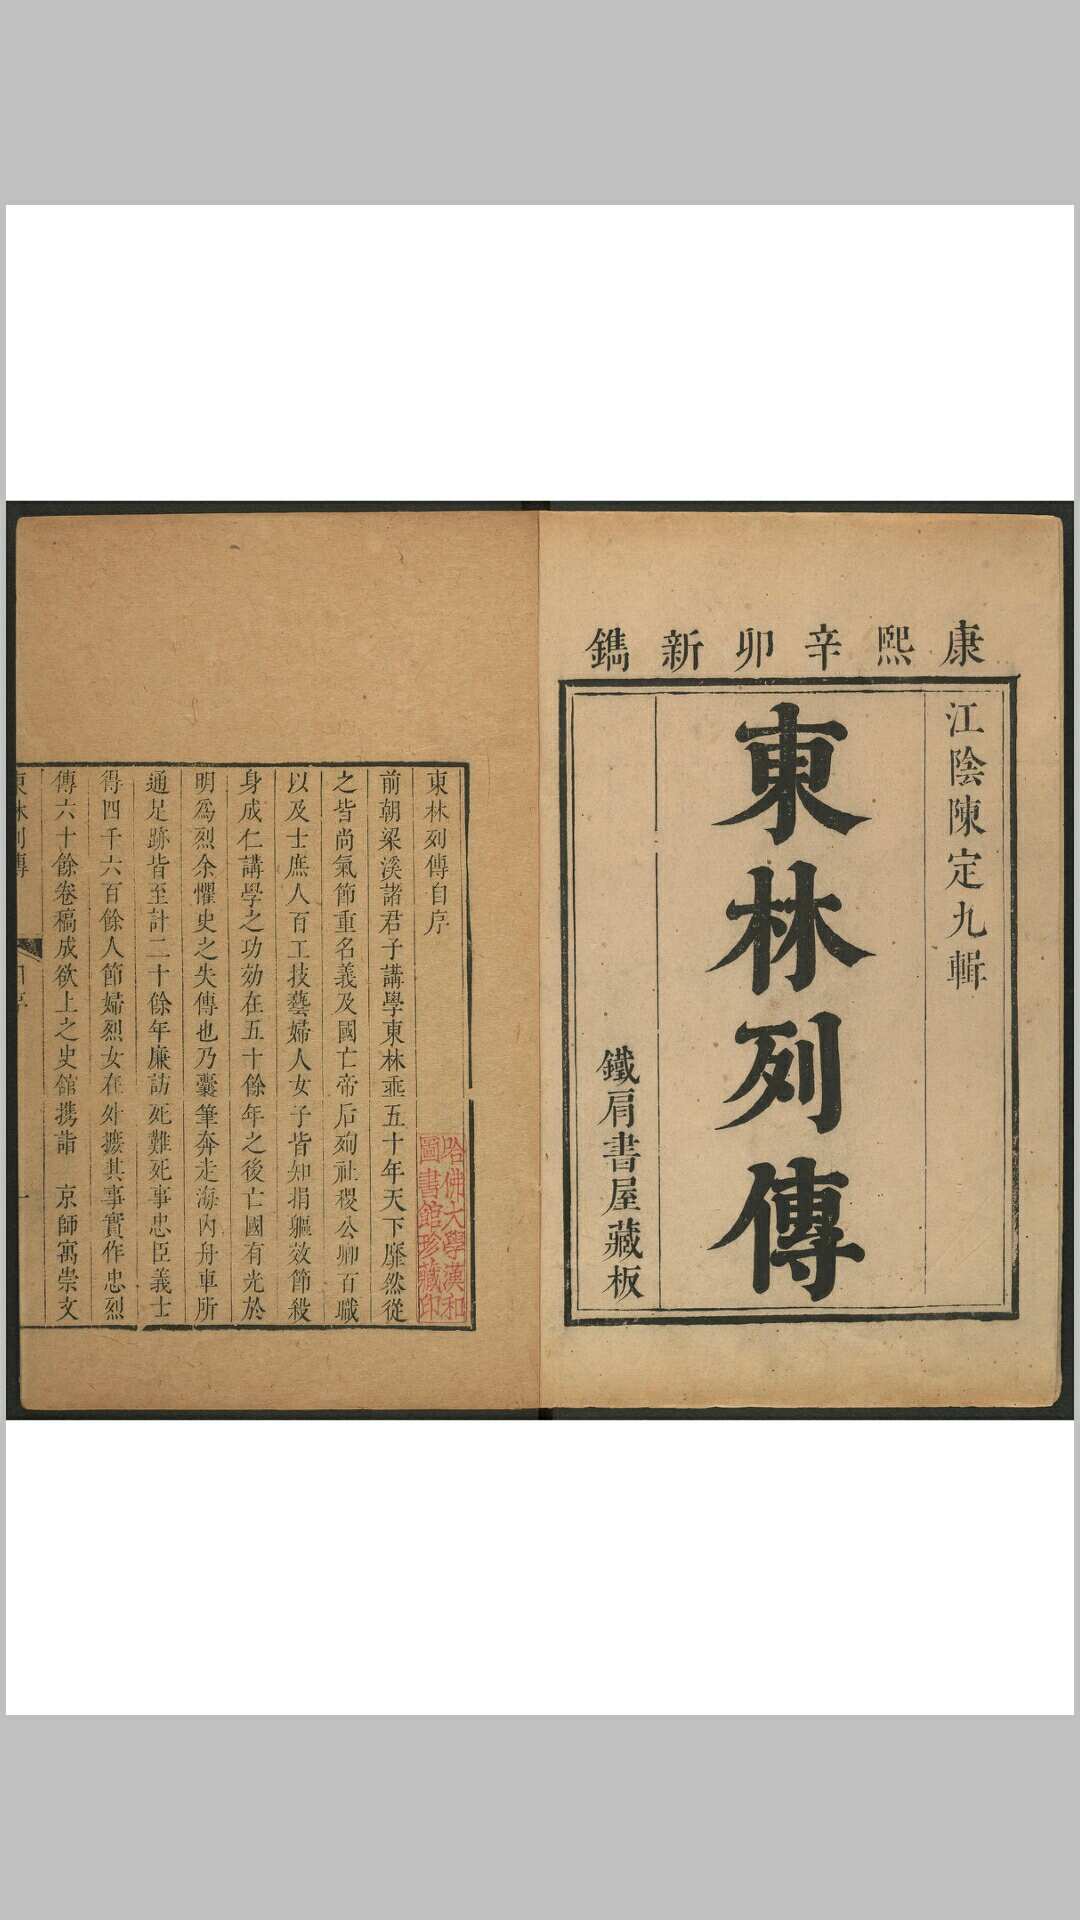 康熙辛卯新鐫
江陰陳定九輯
東林列傳
鐵肩書屋藏板
東林列傳自序
前朝梁溪諸君子講學東林垂五十年天下靡然從
之皆尚氣節重名義及國亡帝后殉社稷公卿百職
以及士庶人百工技藝婦人女子皆知捐軀效節殺
身成仁講學之功効在五十餘年之後亡國有光於
明爲烈余懼史之失傳也乃囊筆奔走海內舟車所
通足跡皆至計二十餘年廉訪死難死事忠臣義士
得四千六百餘人節婦烈女在外摭其事實作忠烈
傳六十餘卷稿成欲上之史館携詣 京師寓崇文
東林列傳
自序
一
哈佛大學漢和
圖書館珍藏印